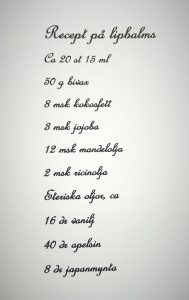 Recept på lipbalms
Ca 20 st 15 ml
50 g bivax
8 msk kokosfett
3 msk jojoba
12 msk mandelolja
2 msk ricinolja
Eteriska oljor, ca
16 dr vanilj
40 dr apelsin
8 dr japanmynta